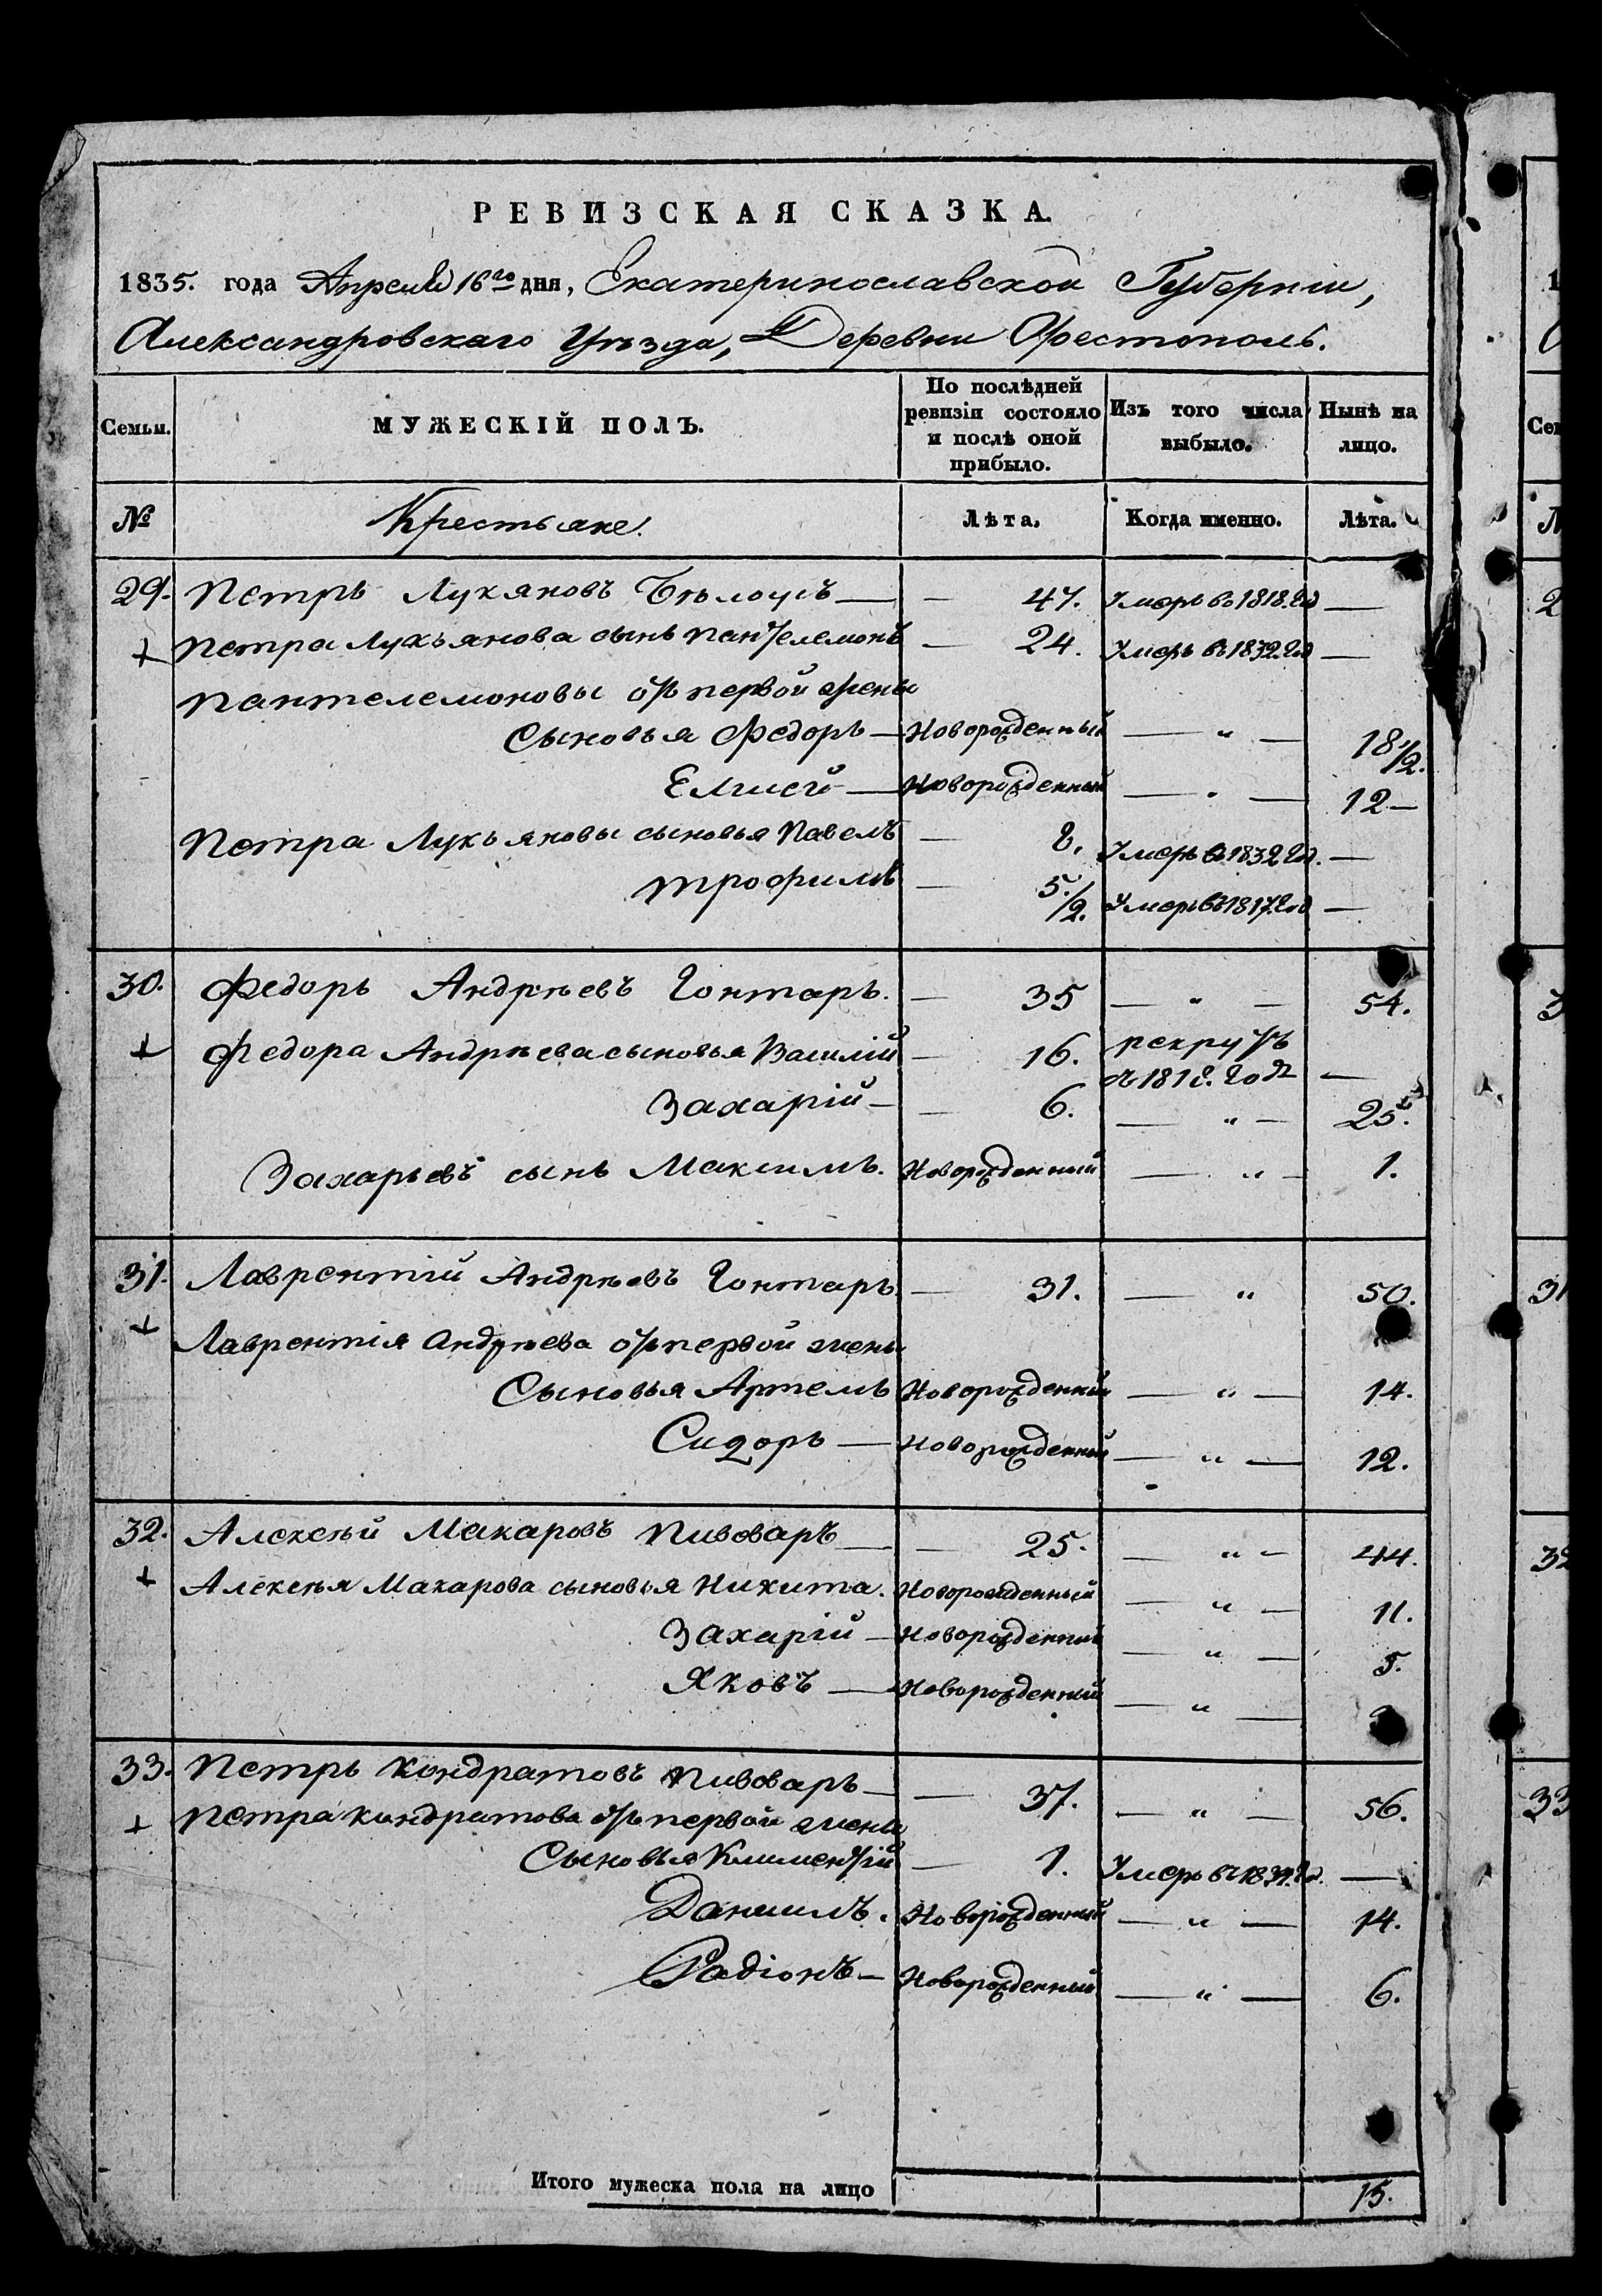 РЕВИЗСКАЯ СКАЗКА.
1835. года Апреля 16го дня, Екатеринославской Губерніи,
Александровскаго Уѣзда, Деревни Орестополь.
Семьи. МУЖЕСКІЙ ПОЛЪ. По послѣдней ревизіи состояло и послѣ оной прибыло. Изъ того числа выбыло. Нынѣ на лицо.
№ Крестьяне. Лѣта. Когда именно. Лѣта.
29. Петръ Лукяновъ Бѣлоусъ — — 47. Умеръ въ 1818. год —
+ Петра Лукьянова сынъ Пантелемонъ — 24. Умеръ въ 1832. год —
Пантелемоновы отъ первой жены
Сыновья Федоръ — Новорожденный — " — 18 1/2.
Елисей — Новорожденный — " — 12 —
Петра Лукьяновы сыновья Павелъ — 8. Умеръ въ 1832 год. —
Трофимъ — 5. 1/2. Умеръ въ 1817. год —
30. Федоръ Андрѣевъ Гонтаръ. — 35 — " — 54.
+ Федора Андрѣева сыновья Василій — 16. рекрутъ
въ 1818. годѣ —
Захарій — — 6. — " — 25.
Захарьевъ сынъ Максимъ. Новорожденный — " — 1.
31. Лаврентій Андрѣевъ Гонтаръ — 31. — " 50.
+ Лаврентія Андрѣева отъ первой жены
Сыновья Артемъ Новорожденный — " — 14.
Сидоръ — Новорожденный — " — 12.
32. Алексѣй Макаровъ Пивоваръ — — 25. — " — 44.
+ Алексѣя Макарова сыновья Никита. Новорожденный — " — 11.
Захарій — Новорожденный — " — 5.
Яковъ — Новорожденный — " —
33. Петръ Кондратовъ Пивоваръ — — 37. — " — 56.
+ Петра Кондратова отъ первой жены
Сыновья Климентій — 1. Умеръ въ —
Даниилъ. Новорожденный — " — 14.
Радіонъ — Новорожденный — " — 6.
Итого мужеска пола на лицо 15.